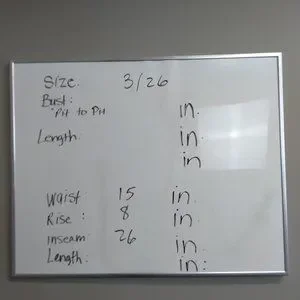 Size: 3/26
Bust: in.
"PH to PH
Length: in.
in
Waist 15 in.
Rise: 8 in.
inseam: 26 in.
Length: in: